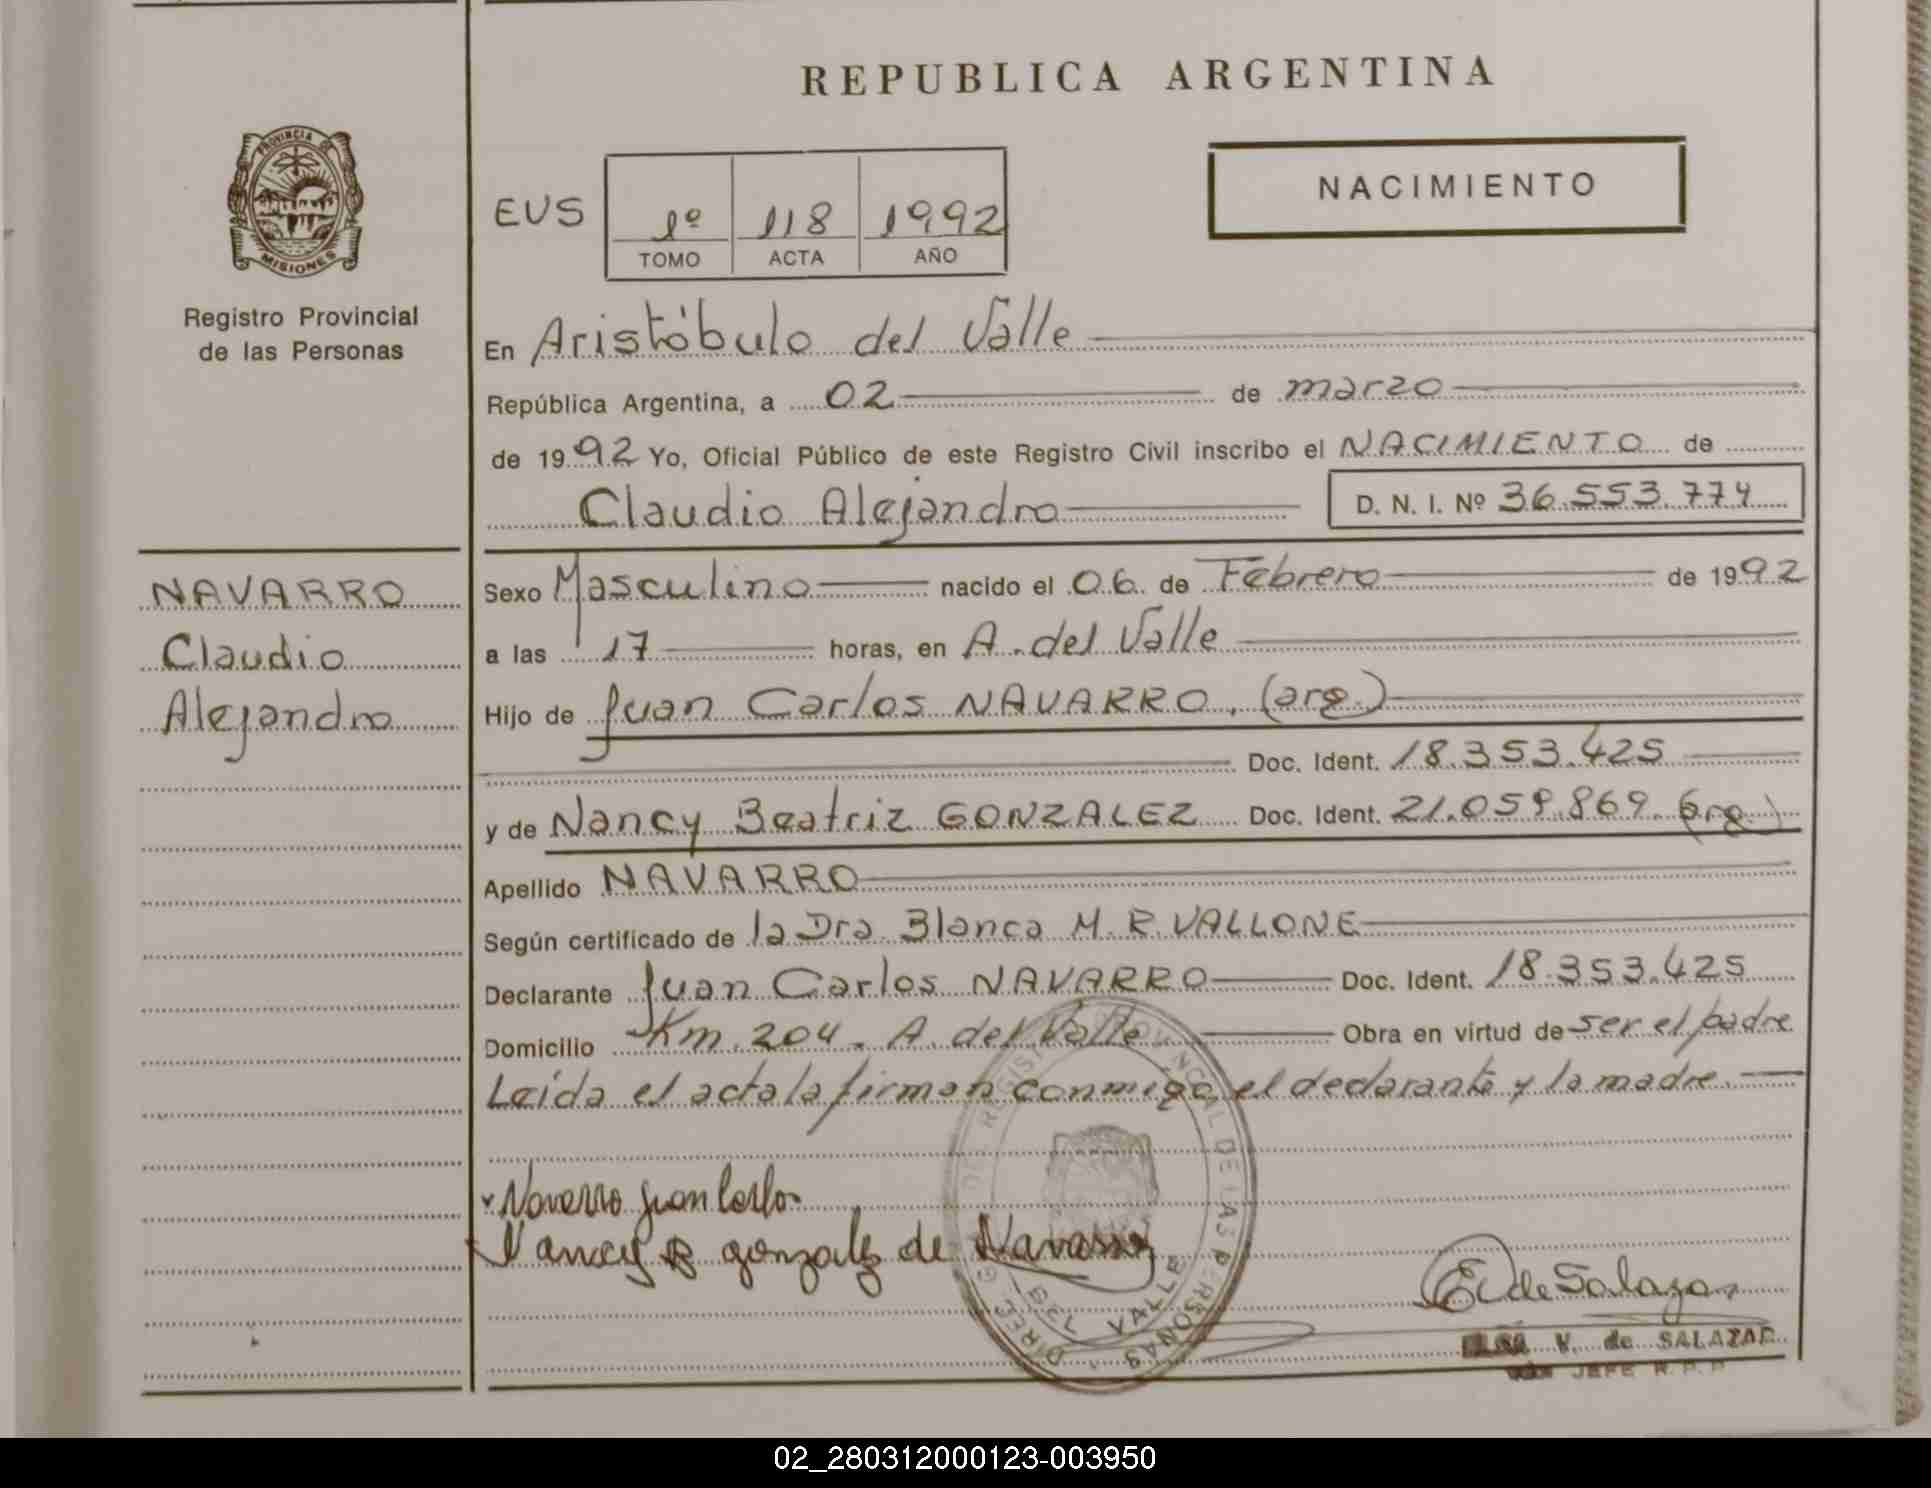 REPUBLICA ARGENTINA
PROVINCIA DE
MISIONES
Registro Provincial
de las Personas
NACIMIENTO
EUS
1º 118 1992
TOMO ACTA AÑO
En Aristóbulo del Valle
República Argentina, a 02 de marzo
de 1992 Yo, Oficial Público de este Registro Civil inscribo el NACIMIENTO de
Claudio Alejandro D. N. I. Nº 36.553.774
NAVARRO
Claudio
Alejandro
Sexo Masculino nacido el 06 de Febrero de 1992
a las 17 horas, en A. del Valle
Hijo de Juan Carlos NAVARRO, (arg.)
Doc. Ident. 18.353.425
y de Nancy Beatriz GONZALEZ Doc. Ident. 21.059.869. (arg.)
Apellido NAVARRO
Según certificado de la Dra Blanca M. R. VALLONE
Declarante Juan Carlos NAVARRO Doc. Ident. 18.353.425
Domicilio Km. 204. A. del Valle Obra en virtud de ser el padre
Leída el acta la firman conmigo el declarante y la madre.
Navarro Juan Carlos
Nancy B gonzalez de Navarro
E de Salazar
V. de SALAZAR
JEFE R. P. P
PROVINCIAL DE LAS PERSONAS
DEL VALLE
02_280312000123-003950